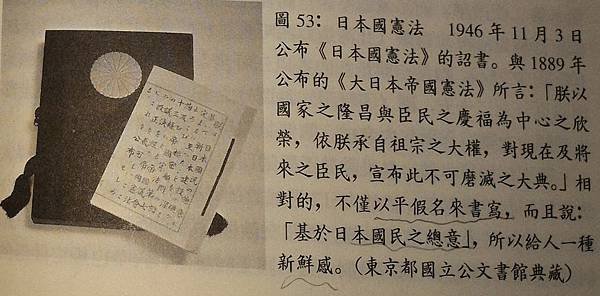 圖53：日本國憲法　1946年11月3日
公布《日本國憲法》的詔書。與1889年
公布的《大日本帝國憲法》所言：「朕以
國家之隆昌與臣民之慶福為中心之欣
榮，依朕承自祖宗之大權，對現在及將
來之臣民，宣布此不可磨滅之大典。」相
對的，不僅以平假名來書寫，而且說：
「基於日本國民之總意」，所以給人一種
新鮮感。（東京都國立公文書館典藏）